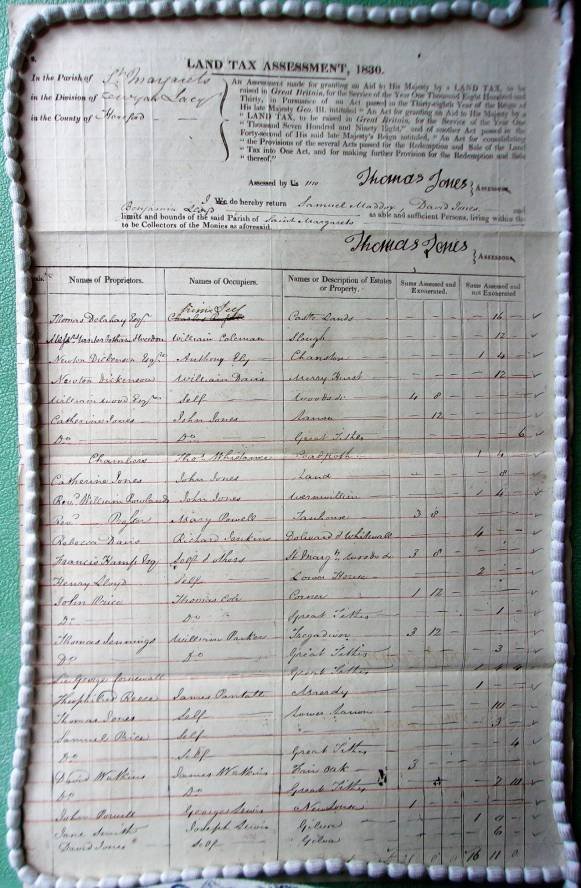 LAND TAX ASSESSMENT, 1830.
In the Parish of St. Margarets
in the Division of Ewyas Lacy
in the County of Hereford
An Assessment made for granting an Aid to His Majesty by a LAND TAX, to be
raised in Great Britain, for the Service of the Year One Thousand Eight Hundred and
Thirty, in Pursuance of an Act passed in the Thirty-eighth Year of the Reign of
His late Majesty Geo. III. intituled "An Act for granting an Aid to His Majesty by a
"LAND TAX, to be raised in Great Britain, for the Service of the Year One
"Thousand Seven Hundred and Ninety Eight," and of another Act passed in the
Forty-second of His said late Majesty's Reign intituled, "An Act for consolidating
"the Provisions of the several Acts passed for the Redemption and Sale of the Land
"Tax into One Act, and for making further Provision for the Redemption and Sale
"thereof."
Assessed by Us Thomas Jones } ASSESSOR
I We do hereby return Samuel Maddox, David Jones and
Benjamin Lloyd as able and sufficient Persons, living within the
limits and bounds of the said Parish of Saint Margarets
to be Collectors of the Monies as aforesaid.
Thomas Jones } ASSESSORS
Names of Proprietors. Names of Occupiers. Names or Description of Estates or Property. Sums Assessed and Exonerated. Sums Assessed and not Exonerated.
Thomas Delahay Esq Charles Lands 16
William Coleman Slough 12
Newton Dickenson Esq Anthony Ely Chanston 1 4
Newton Dickenson William Davis Merry Hurst 12
William Wood Esq Self Woods &c 4 8
Catherine Jones John Jones 12
Do Do Great Tithes 6
Chambers Thos. Whistance 1 4
Catherine Jones John Jones Land 8
Revd. William Rowlands John Jones 1 4
Revd. Prosser Mary Powell Tanhouse 3 8
Rebecca Davis Richard Jenkins & Whitewall 4
Francis Hamp Esq Self & others St Margts. Woods &c 3 8
Henry Lloyd Self Lower House 2
John Price Thomas Cole Corner 1 12
Do Do Great Tithes 1
Thomas Jennings William Parker Tregadwen 3 12
Do Do Great Tithes 3
Sir George Cornewall Great Tithes 1 4 4
Theophilus Reece James Pantall 1
Thomas Jones Self Lower 10
Samuel Price Self 3
Do Self Great Tithes 4
David Watkins James Watkins Fair Oak 3
Do Do Great Tithes 7 10
John Powell George Lewis Newhouse 1
Jane Smith Joseph Lewis Gilva 1 0
David Jones Self Gilva 6
16 11 0